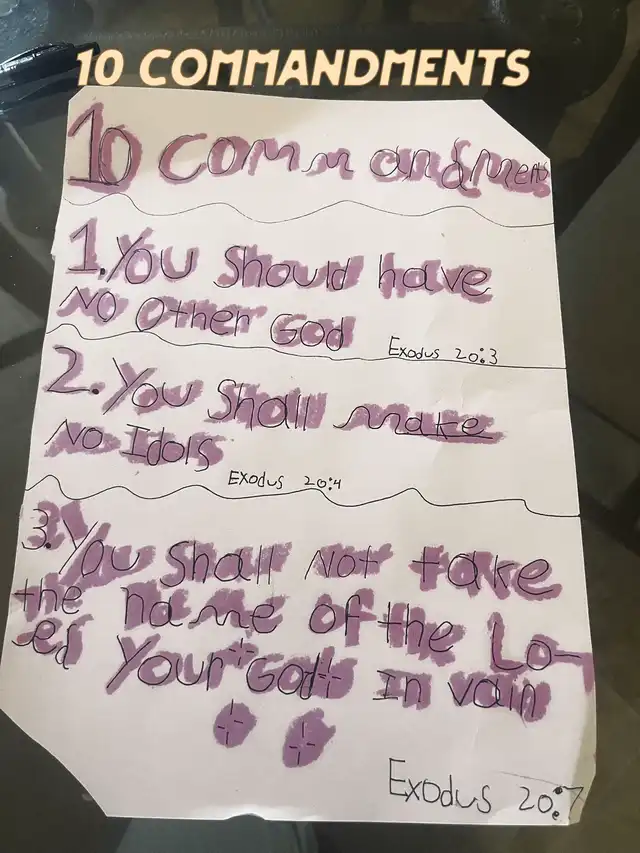 10 COMMANDMENTS
10 Commandments
1. You Should have
No Other God
Exodus 20:3
2. You Shall make
No Idols
Exodus 20:4
3. You Shall Not take
the name of the Lo-
ed Your God In vain
Exodus 20:7